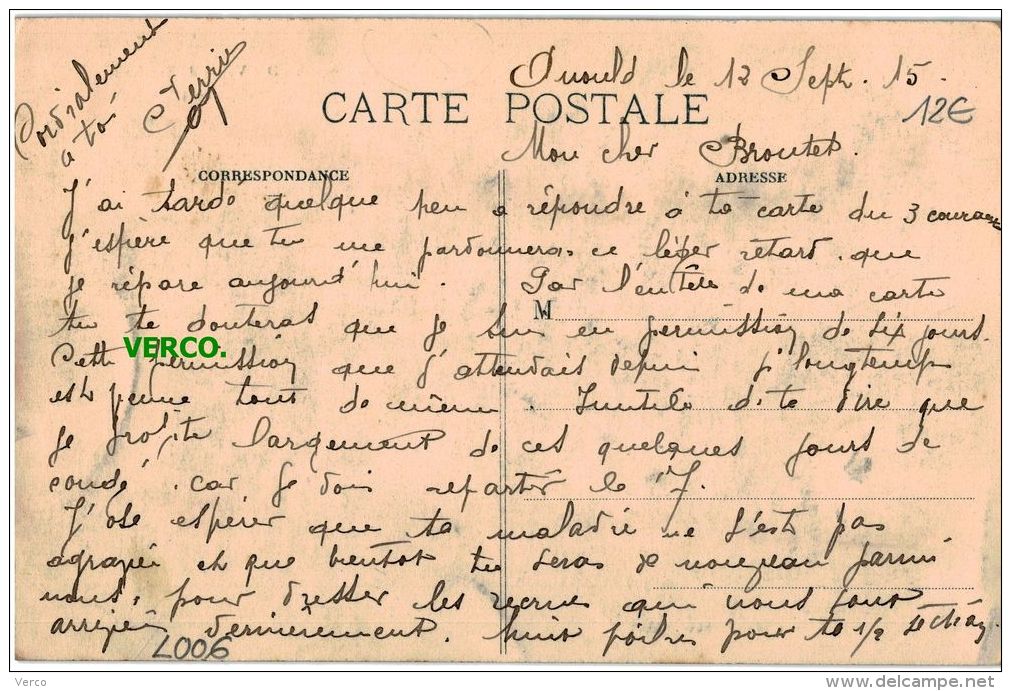 Anould le 12 Sept. 15.
12€
CARTE POSTALE
Mon cher Broutet.
CORRESPONDANCE
ADRESSE
J'ai tardé quelque peu a répondre à ta carte du 3 courant
j'espère que tu me pardonneras ce léger retard. que
je répare aujourd'hui. Par l'entête de ma carte
M
tu te douteras que je suis en permission de six jours.
VERCO.
Cette permission que j'attendais depuis si longtemps
est venue tout de même. Inutile d.te dire que
je profite largement de ces quelques jours de
congé, car je dois repartir le 17.
J'ose espérer que ta maladie ne s'est pas
agravée et que bientot tu seras de nouveau parmi
nous, pour dresser les recrues qui nous sont
arrivées dernièrement. huit poilus pour ta 1/2 section
Cordialement
a toi
2006
Verco
www.delcampe.net